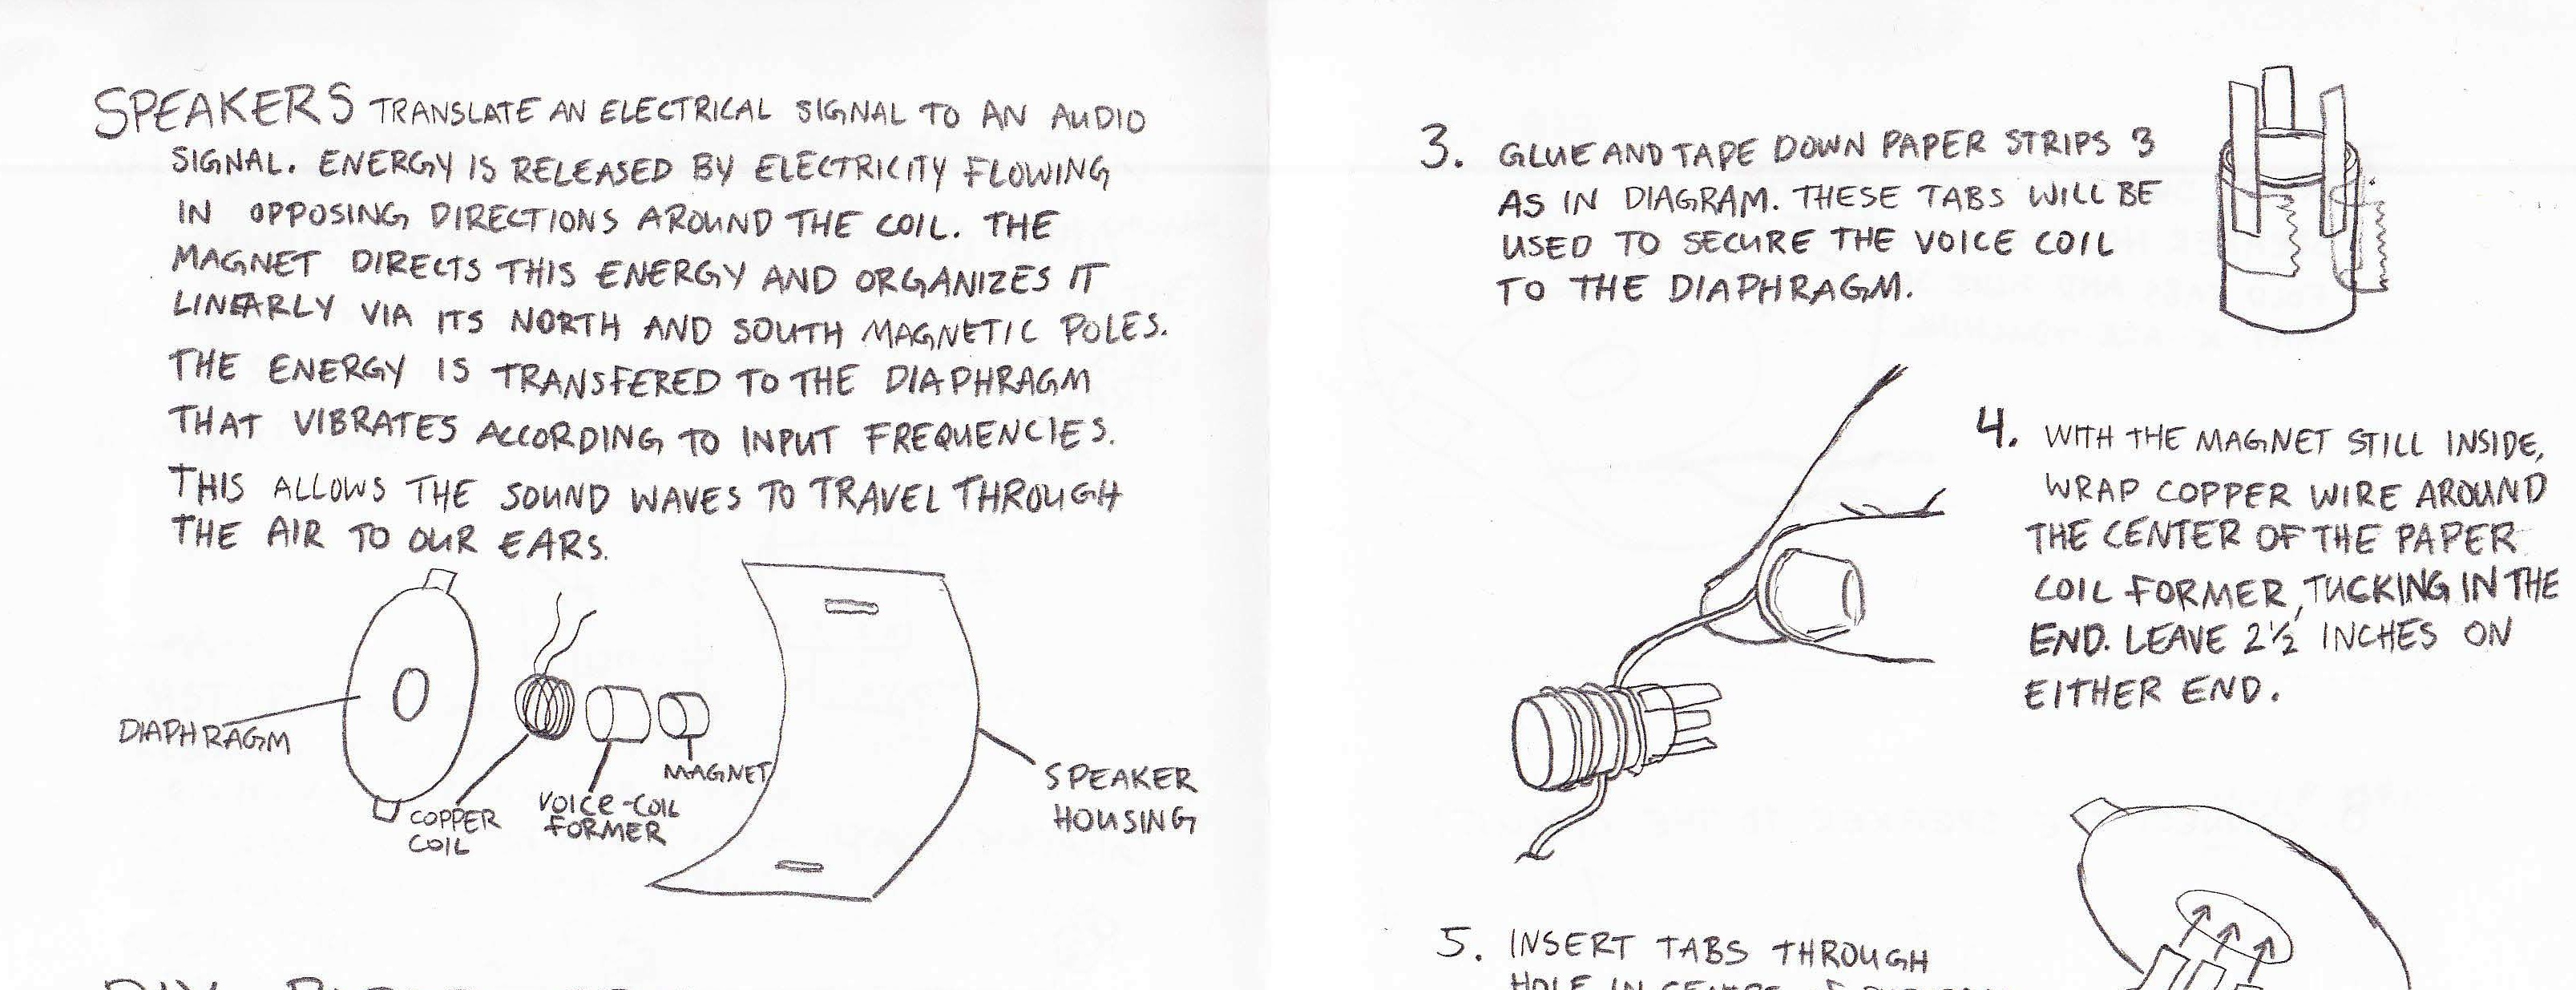 SPEAKERS TRANSLATE AN ELECTRICAL SIGNAL TO AN AUDIO
SIGNAL. ENERGY IS RELEASED BY ELECTRICITY FLOWING
IN OPPOSING DIRECTIONS AROUND THE COIL. THE
MAGNET DIRECTS THIS ENERGY AND ORGANIZES IT
LINEARLY VIA ITS NORTH AND SOUTH MAGNETIC POLES.
THE ENERGY IS TRANSFERED TO THE DIAPHRAGM
THAT VIBRATES ACCORDING TO INPUT FREQUENCIES.
THIS ALLOWS THE SOUND WAVES TO TRAVEL THROUGH
THE AIR TO OUR EARS.
DIAPHRAGM
COPPER
COIL
VOICE-COIL
FORMER
MAGNET
SPEAKER
HOUSING
DIY
3. GLUE AND TAPE DOWN PAPER STRIPS 3
AS IN DIAGRAM. THESE TABS WILL BE
USED TO SECURE THE VOICE COIL
TO THE DIAPHRAGM.
4. WITH THE MAGNET STILL INSIDE,
WRAP COPPER WIRE AROUND
THE CENTER OF THE PAPER
COIL FORMER, TUCKING IN THE
END. LEAVE 2½ INCHES ON
EITHER END.
5. INSERT TABS THROUGH
HOLE IN CENTRE